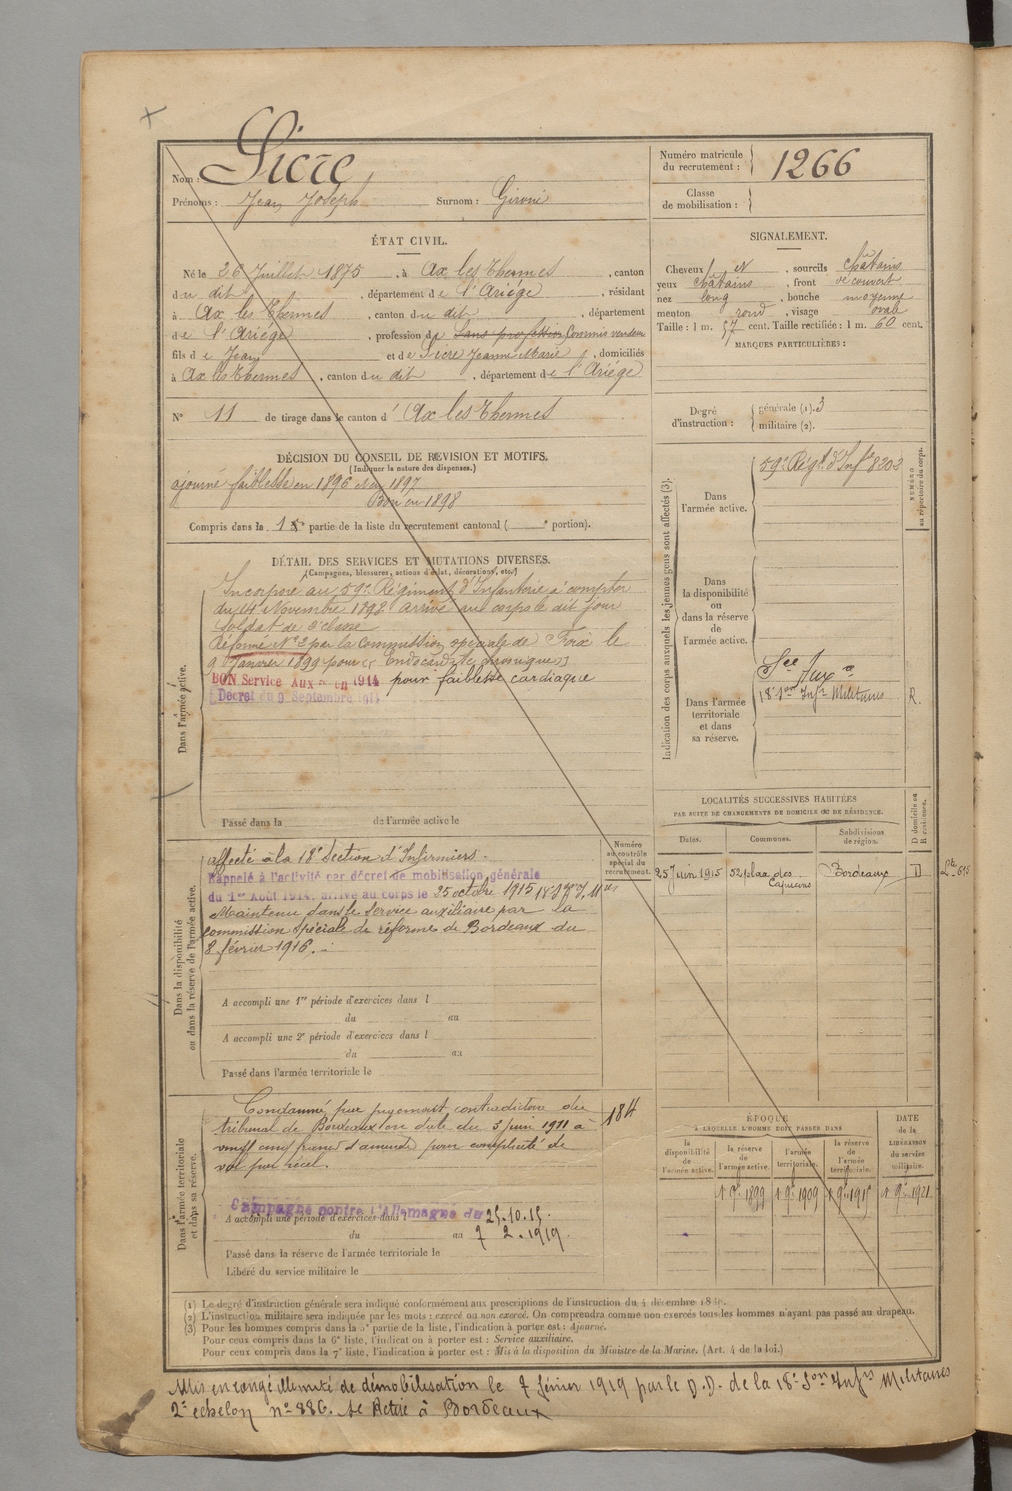 Nom : Sicre
Prénoms : Jean Joseph Surnom : Gironé
Numéro matricule du recrutement : 1266
Classe de mobilisation :
ÉTAT CIVIL.
Né le 26 Juillet 1875, à Ax les Thermes, canton
du dit, département de l'Ariège, résidant
à Ax les Thermes, canton du dit, département
de l'Ariège, profession de Sans profession Commis vendeur
fils de Jean et de Sicre Jeanne Marie, domiciliés
à Ax les Thermes, canton du dit, département de l'Ariège
N° 11 de tirage dans le canton d' Ax les Thermes
SIGNALEMENT.
Cheveux et, sourcils châtains
yeux châtains, front découvert
nez long, bouche moyenne
menton rond, visage ovale
Taille : 1 m. 57 cent. Taille rectifiée : 1 m. 60 cent.
MARQUES PARTICULIÈRES :
Degré d'instruction : générale (1). 3
militaire (2).
DÉCISION DU CONSEIL DE REVISION ET MOTIFS.
(Indiquer la nature des dispenses.)
ajourné faiblesse en 1896 et en 1897
Bon en 1898
Compris dans la 1re partie de la liste du recrutement cantonal ( ° portion).
DÉTAIL DES SERVICES ET MUTATIONS DIVERSES.
(Campagnes, blessures, actions d'éclat, décorations, etc.)
Dans l'armée active.
Incorporé au 59e Régiment d'Infanterie à compter
du 14 Novembre 1898 arrivé au corps le dit jour
soldat de 2e classe
Réformé N° 2 par la Commission spéciale de Foix le
9 Janvier 1899 pour « Endocardite chronique »
BON Service Auxre en 1914 pour faiblesse cardiaque
Décret du 9 Septembre 1914
Passé dans la de l'armée active le
Indication des corps auxquels les jeunes gens sont affectés (3).
NUMÉRO au répertoire du corps.
Dans l'armée active.
59e Régt d'Infie 8203
Dans la disponibilité ou dans la réserve de l'armée active.
Dans l'armée territoriale et dans sa réserve.
Sce Auxre
18e Son Infrs Militaires R.
LOCALITÉS SUCCESSIVES HABITÉES
PAR SUITE DE CHANGEMENTS DE DOMICILE OU DE RÉSIDENCE.
Dates. Communes. Subdivisions de région. D domicile ou R résidence.
25 Juin 1915 52 plaa des Capucins Bordeaux D
Dans la disponibilité ou dans la réserve de l'armée active.
Numéro au contrôle spécial du recrutement.
affecté à la 18e Section d'Infirmiers.
Rappelé à l'activité par décret de mobilisation générale
du 1er Août 1914, arrivé au corps le 25 octobre 1915
Maintenu dans le Service auxiliaire par la
commission spéciale de réforme de Bordeaux du
8 février 1916.
A accompli une 1re période d'exercices dans l
du au
A accompli une 2e période d'exercices dans l
du au
Passé dans l'armée territoriale le
Dans l'armée territoriale et dans sa réserve.
Condamné par jugement contradictoire du 184
tribunal de Bordeaux en date du 3 juin 1911 à
vingt cinq francs d'amende pour complicité de
vol par recel.
Campagne contre l'Allemagne du 25.10.15.
A accompli une période d'exercices dans l
du au 7 2.1919.
Passé dans la réserve de l'armée territoriale le
Libéré du service militaire le
ÉPOQUE
A LAQUELLE L'HOMME DOIT PASSER DANS
la disponibilité de l'armée active. la réserve de l'armée active. l'armée territoriale. la réserve de l'armée territoriale. DATE de la LIBÉRATION du service militaire.
1 9bre 1899 1 9bre 1909 1 9bre 1915 1 9bre 1921
(1) Le degré d'instruction générale sera indiqué conformément aux prescriptions de l'instruction du 4 décembre
(2) L'instruction militaire sera indiquée par les mots : exercé ou non exercé. On comprendra comme non exercés tous les hommes n'ayant pas passé au drapeau.
(3) Pour les hommes compris dans la 5e partie de la liste, l'indication à porter est : Ajourné.
Pour ceux compris dans la 6e liste, l'indication à porter est : Service auxiliaire.
Pour ceux compris dans la 7e liste, l'indication à porter est : Mis à la disposition du Ministre de la Marine. (Art. 4 de la loi.)
Mis en congé illimité de démobilisation le 7 février 1919 par le D.D. de la 18e Son Infrs Militaires
2e échelon n° 886. se retire à Bordeaux